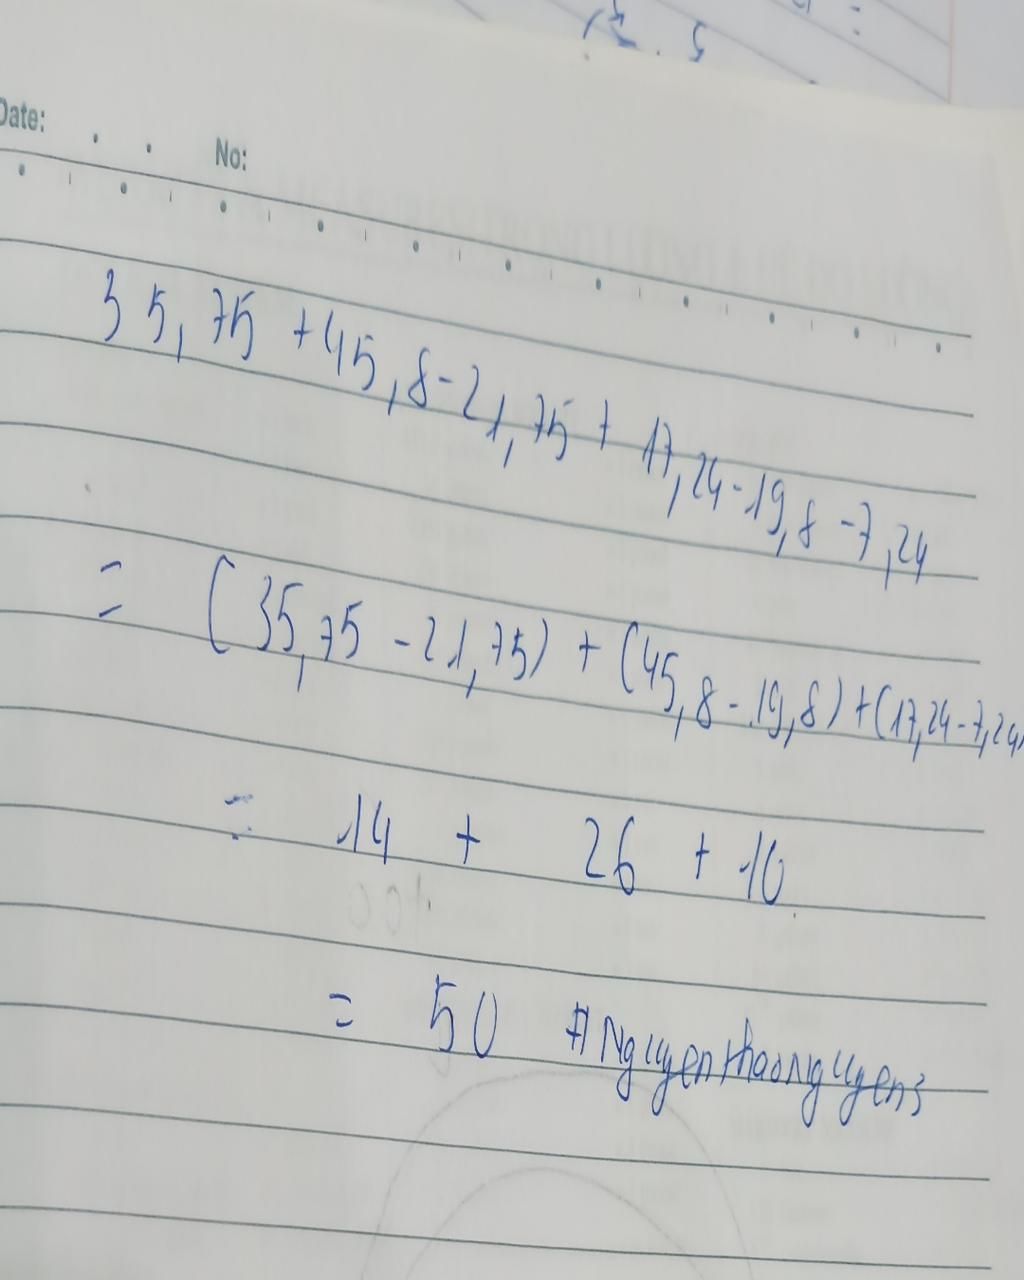 Date: No:
35,75 + 45,8 - 21,75 + 17,24 - 19,8 - 7,24
= (35,75 - 21,75) + (45,8 - 19,8) + (17,24 - 7,24)
= 14 + 26 + 10
= 50 #Nguyenthaonguyens